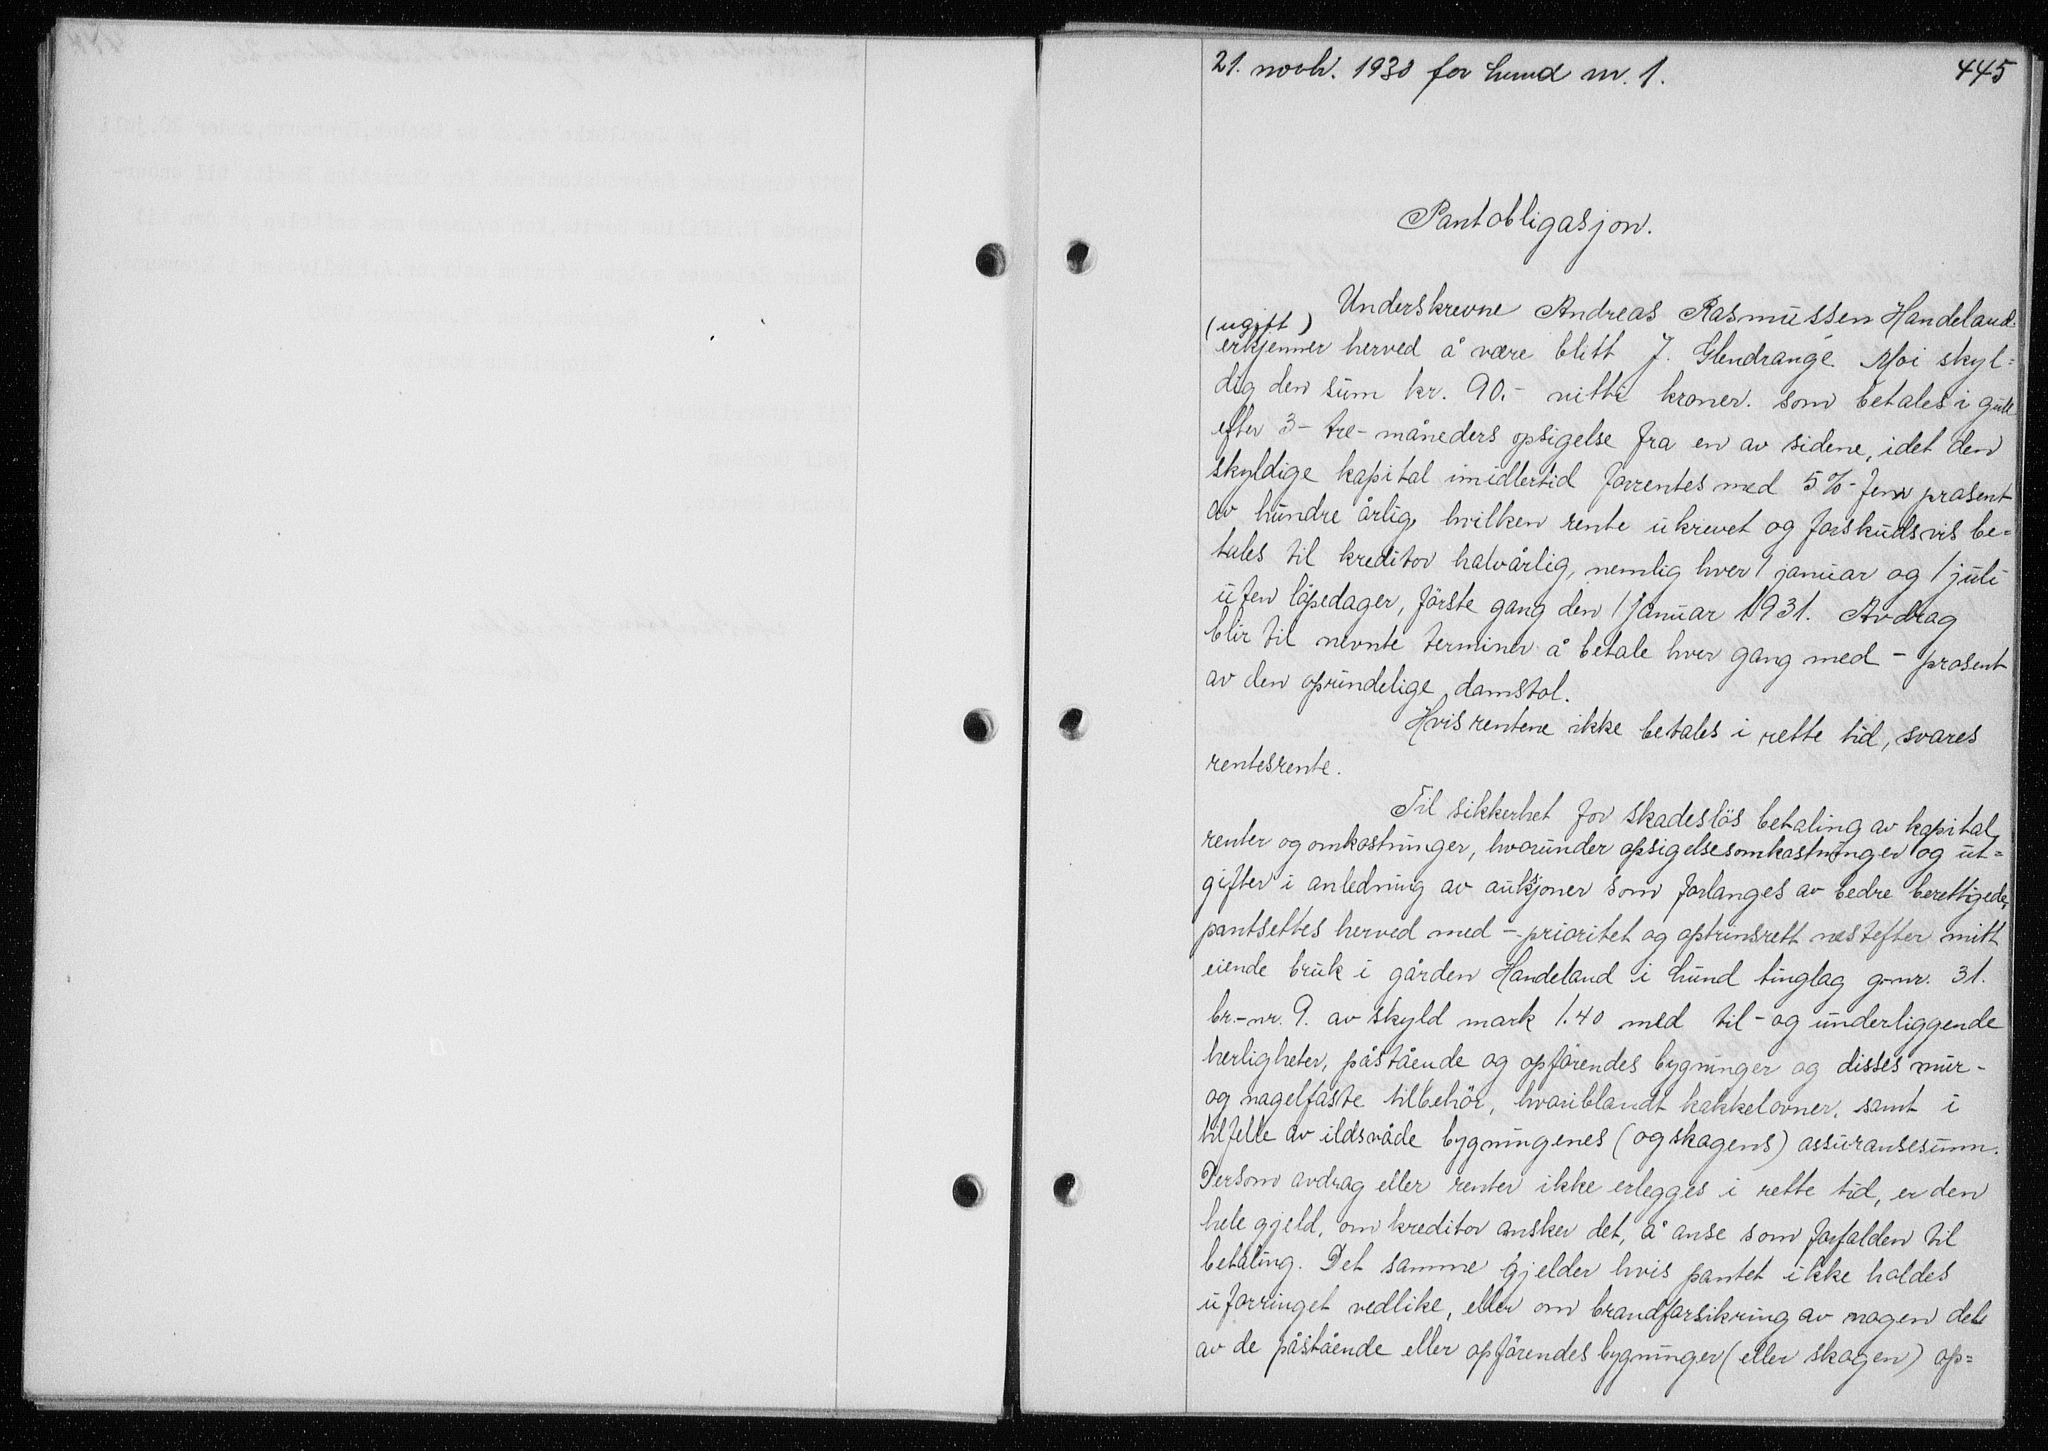 21. novbr. 1930 for Lund nr. 1.
445
Pantobligasjon.
Underskrevne Andreas Rasmussen Handeland
(ugift)
erkjenner herved å være blitt J. Glendrange Moi skyl=
dig den sum kr. 90.- nitti kroner. som betales i gull
efter 3- tre- måneders opsigelse fra en av sidene, idet den
skyldige kapital imidlertid forrentes med 5%- fem prosent
av hundre årlig, hvilken rente ukrevet og forskudsvis be=
tales til kreditor halvårlig, nemlig hver 1 januar og 1 juli
uten löpedager, förste gang den 1 januar 1931. Avdrag
blir til nevnte terminer å betale hver gang med - prosent
av den oprindelige damstol.
Hvis rentene ikke betales i rette tid, svares
rentesrente.
Til sikkerhet for skadeslös betaling av kapital,
renter og omkostninger, hvorunder opsigelsesomkostninger og ut=
gifter i anledning av auksjoner som forlanges av bedre berettigede,
pantsettes herved med - prioritet og optrinsrett nestefter mitt
eiende bruk i gården Handeland i Lund tinglag g-nr. 31.
br.-nr. 9. av skyld mark 1.40 med til- og underliggende
herligheter, påstående og opförendes bygninger og disses mur-
og nagelfaste tilbehör, hvoriblandt kakkelovner, samt i
tilfelle av ildsvåde bygningenes (og skogens) assuransesum.
Dersom avdrag eller renter ikke erlegges i rette tid, er den
hele gjeld, om kreditor ønsker det, å anse som forfalden til
betaling. Det samme gjelder hvis pantet ikke holdes
uforringet vedlike, eller om brandforsikring av nogen del
av de påstående eller opförendes bygninger (eller skogen) op=